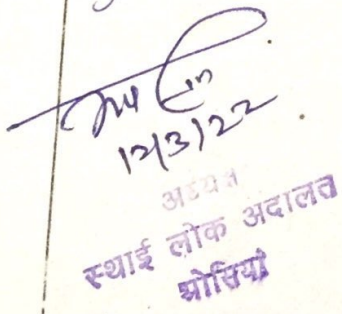 12/3/22
अध्यक्ष
स्थाई लोक अदालत
ओसियां